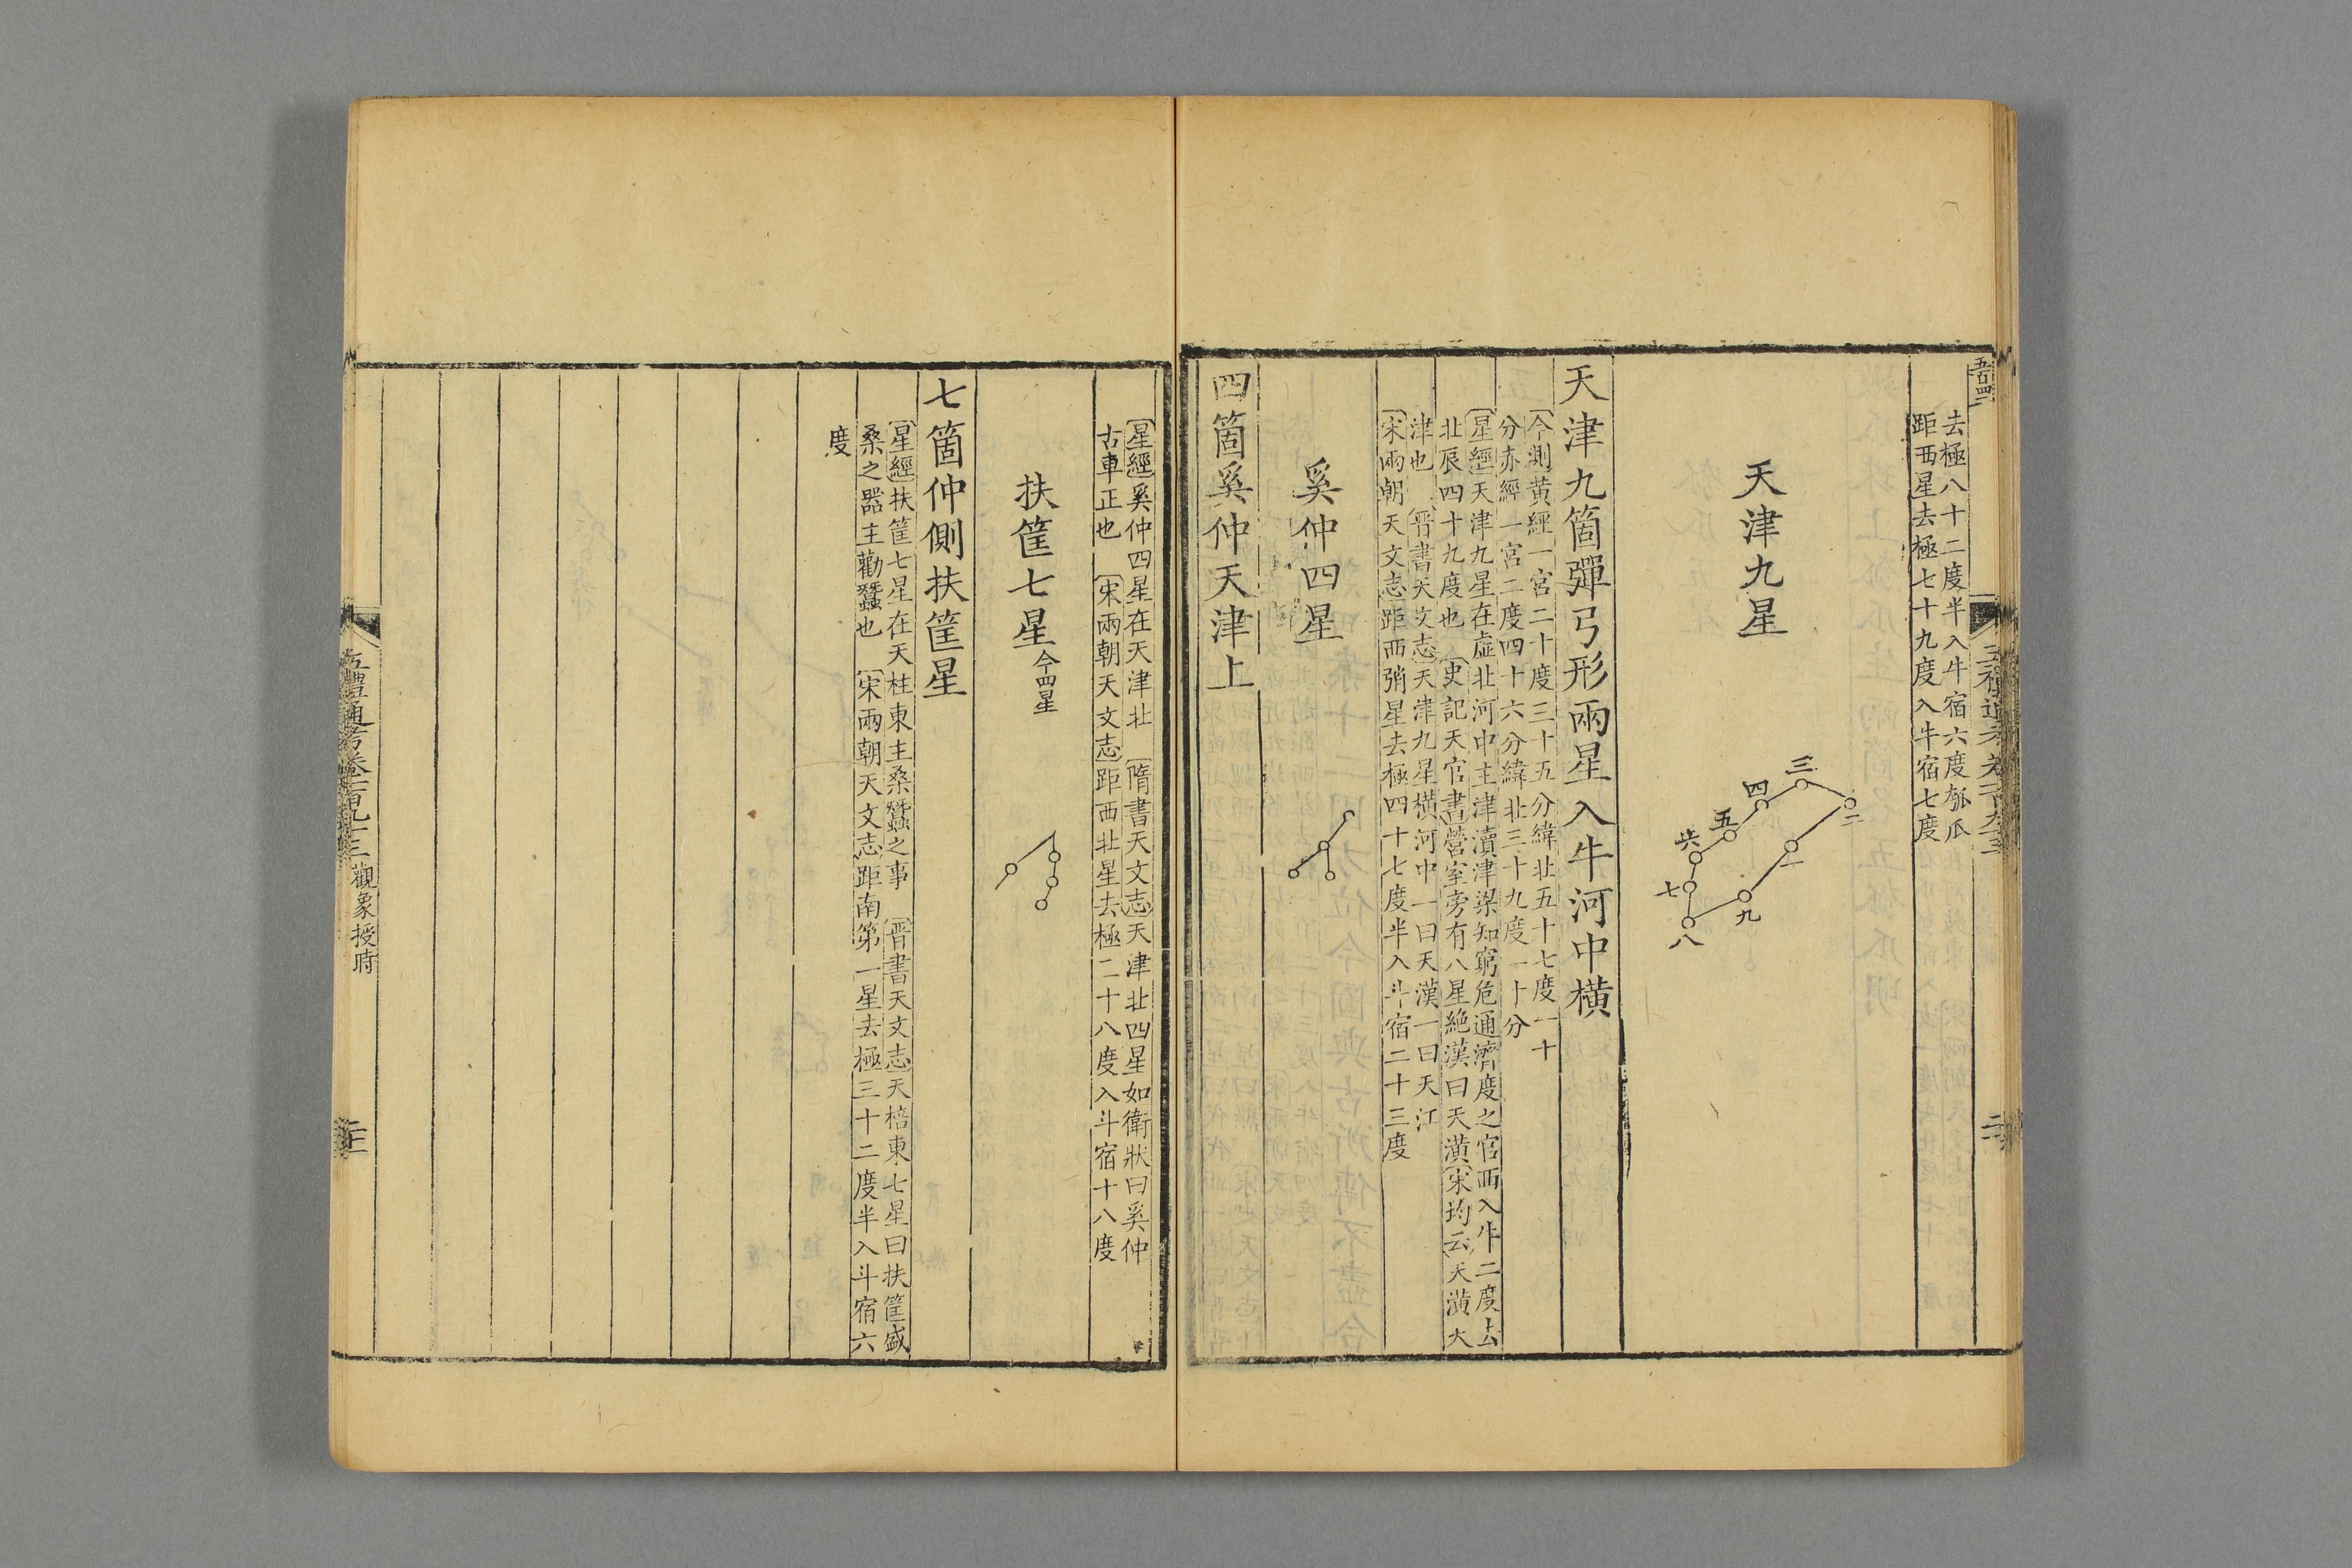 去極八十二度半入牛宿六度瓠瓜
距西星去極七十九度入牛宿七度
天津九星
一
二
三
四
五
六
七
八
九
天津九箇彈弓形兩星入牛河中橫
今測黃經一宮二十度三十五分緯北五十七度一十
分赤經一宮二度四十六分緯北三十九度一十分
星經天津九星在虛北河中主津瀆津梁知窮危通濟度之官西入牛二度去
北辰四十九度也 史記天官書營室旁有八星絶漢曰天潢宋均云天潢天
津也 晉書天文志天津九星橫河中一曰天漢一曰天江
宋兩朝天文志距西弰星去極四十七度半入斗宿二十三度
奚仲四星
四箇奚仲天津上
星經奚仲四星在天津北 隋書天文志天津北四星如衛狀曰奚仲
古車正也 宋兩朝天文志距西北星去極二十八度入斗宿十八度
扶筐七星今四星
七箇仲側扶筐星
星經扶筐七星在天柱東主桑蠶之事 晉書天文志天棓東七星曰扶筐盛
桑之器主勸蠶也 宋兩朝天文志距南第一星去極三十二度半入斗宿六
度
五禮通考卷一百九十三 觀象授時